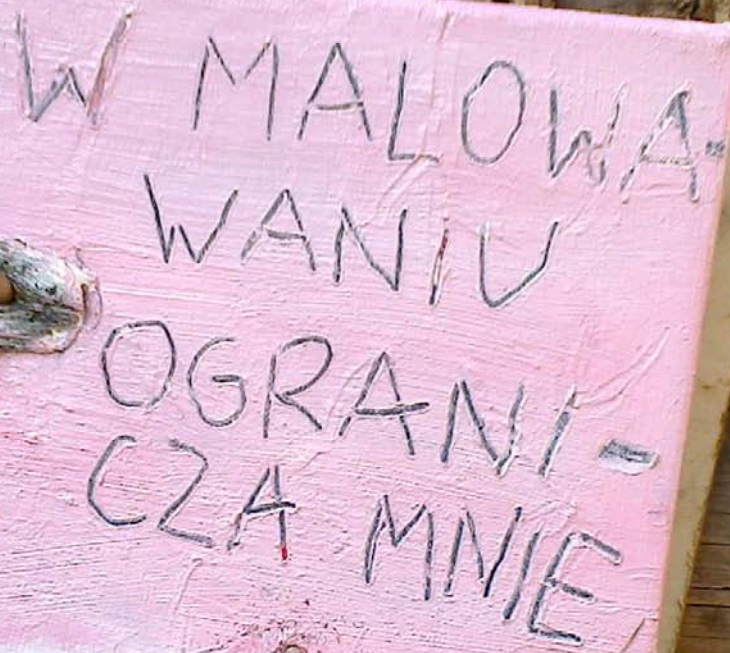 W MALOWA-
WANIU
OGRANI-
CZA MNIE